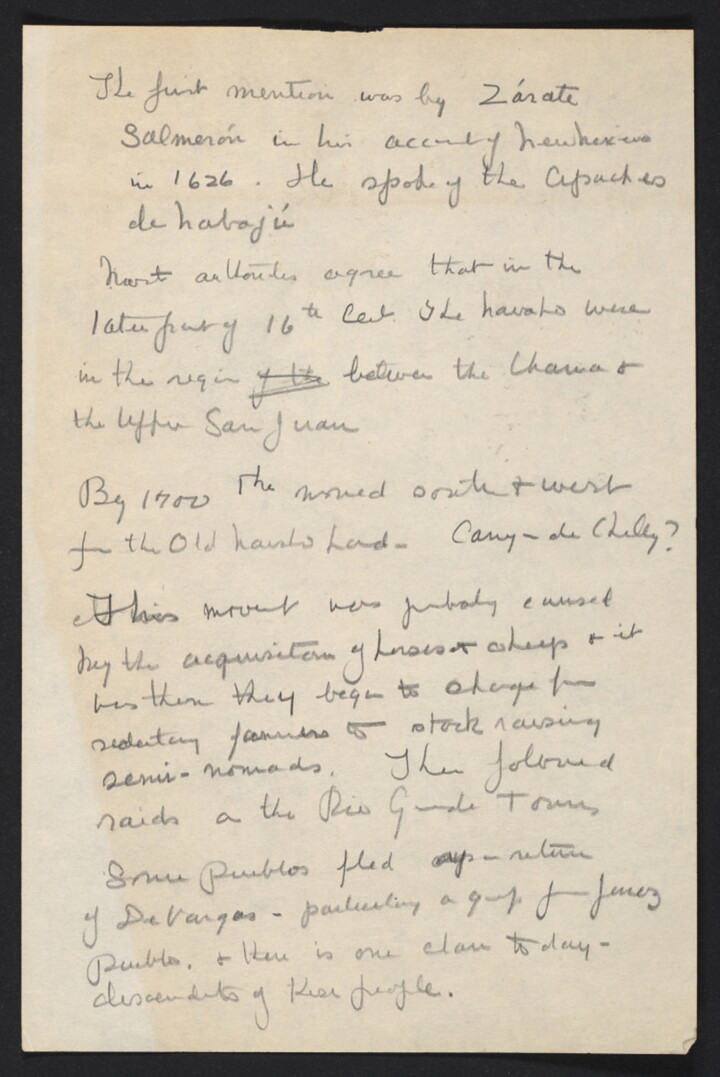 The first mention was by Zárate
Salmerón in his account of New Mexico
in 1626. He spoke of the Apaches
de Nabajú
Most authorities agree that in the
later part of 16th Cent. The Navaho were
in the region of the between the Chama &
the Upper San Juan
By 1700 The moved south & west
for the Old Navaho Land - Canyon de Chelly?
This movement was probably caused
by the acquisition of horses & sheep & it
was then they began to change from
sedentary farmers to stock raising
semi-nomads. Then followed
raids on the Rio Grande Towns
Some Pueblos fled upon return
of De Vargas - particularly a group from Jemez
Pueblo. & there is one clan today -
descendents of these people.